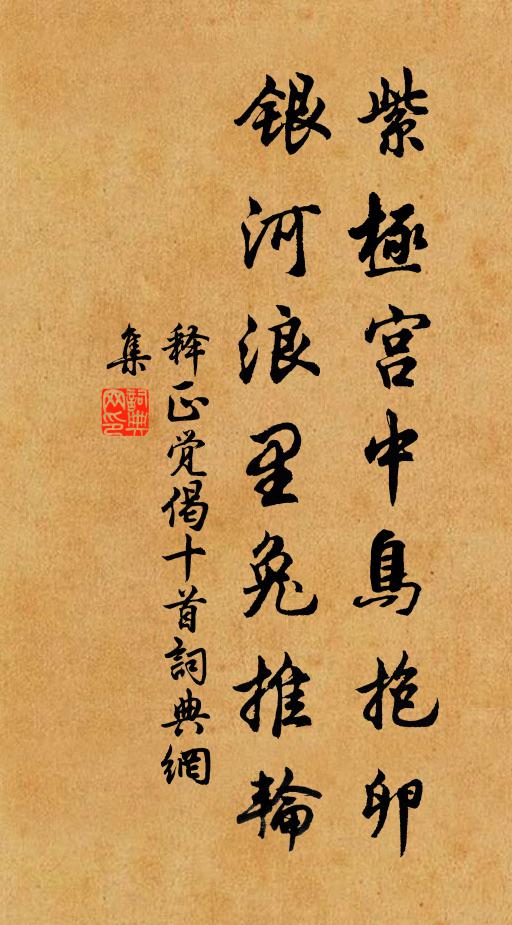 紫極宫中鳥抱卵
銀河浪里兔推輪
释正觉偈十首詞典網
集
詞典網印